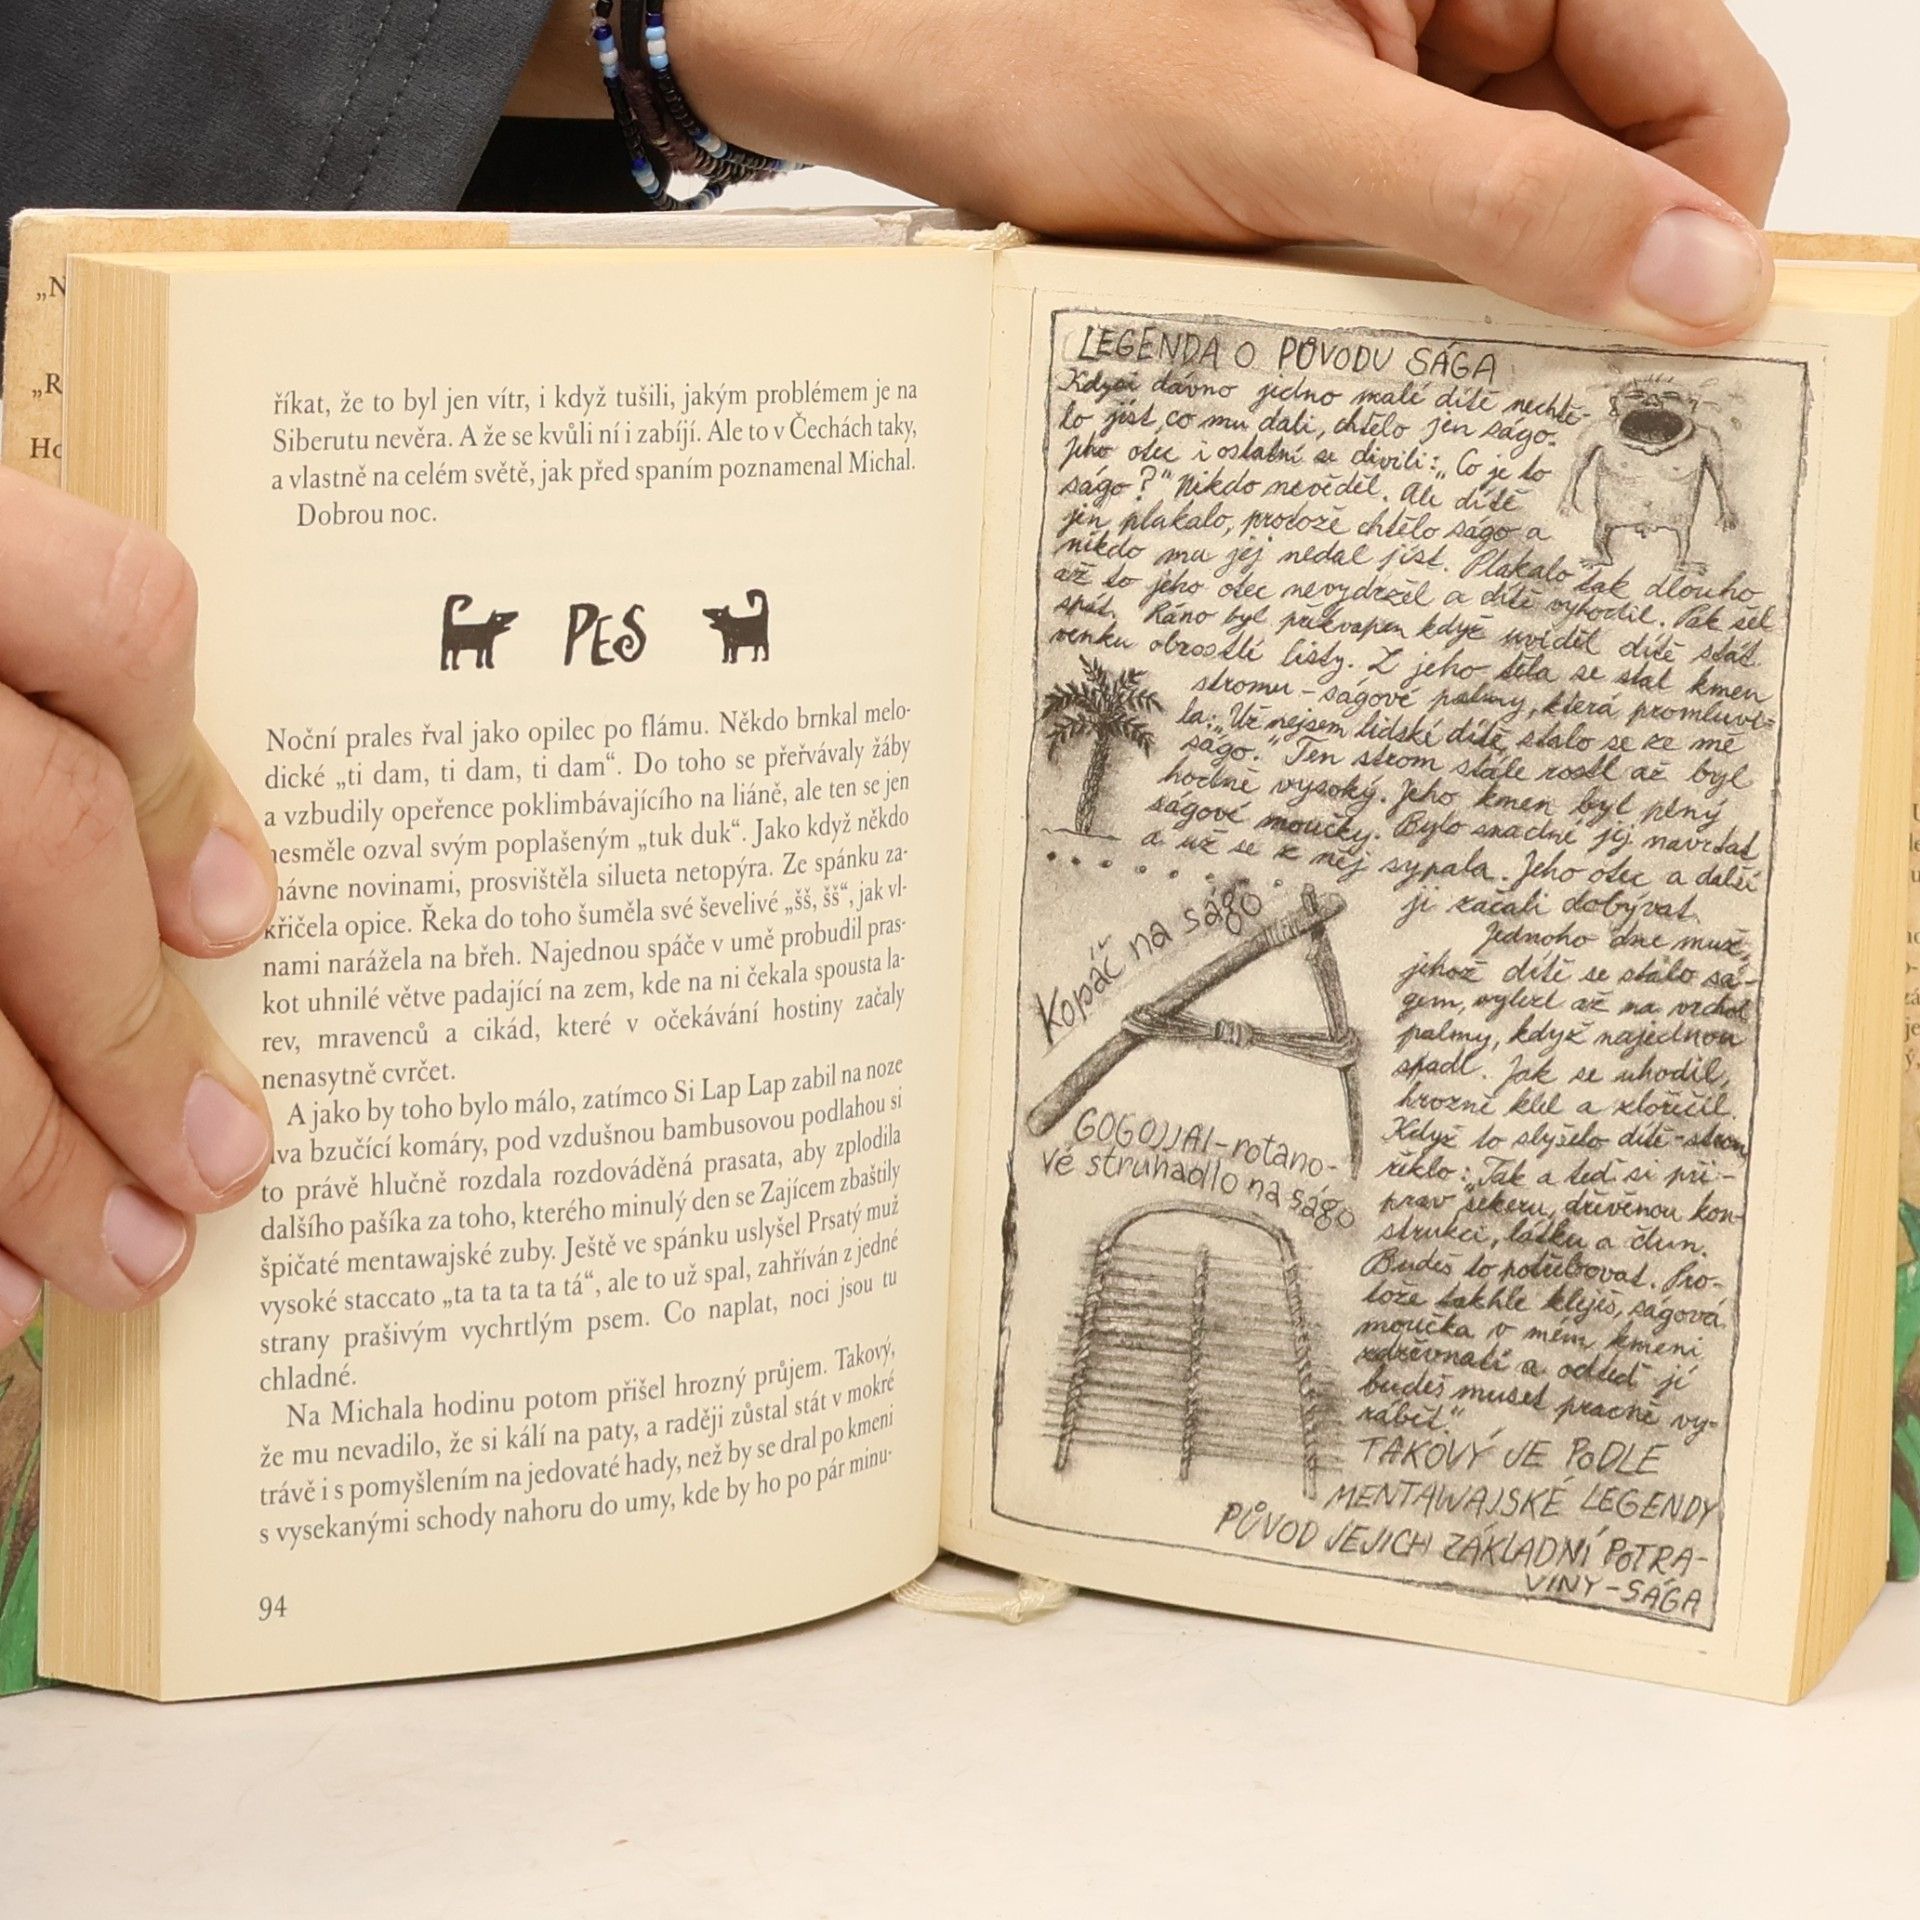 „N
„R
Ho
říkat, že to byl jen vítr, i když tušili, jakým problémem je na
Siberutu nevěra. A že se kvůli ní i zabíjí. Ale to v Čechách taky,
a vlastně na celém světě, jak před spaním poznamenal Michal.
Dobrou noc.
PES
Noční prales řval jako opilec po flámu. Někdo brnkal melo-
dické „ti dam, ti dam, ti dam“. Do toho se přeřvávaly žáby
a vzbudily opeřence poklimbávajícího na liáně, ale ten se jen
nesměle ozval svým poplašeným „tuk duk“. Jako když někdo
mávne novinami, prosvištěla silueta netopýra. Ze spánku za-
křičela opice. Řeka do toho šuměla své ševelivé „šš, šš“, jak vl-
nami narážela na břeh. Najednou spáče v umě probudil pras-
kot uhnilé větve padající na zem, kde na ni čekala spousta la-
rev, mravenců a cikád, které v očekávání hostiny začaly
nenasytně cvrčet.
A jako by toho bylo málo, zatímco Si Lap Lap zabil na noze
dva bzučící komáry, pod vzdušnou bambusovou podlahou si
to právě hlučně rozdala rozdováděná prasata, aby zplodila
dalšího pašíka za toho, kterého minulý den se Zajícem zbaštily
špičaté mentawajské zuby. Ještě ve spánku uslyšel Prsatý muž
vysoké staccato „ta ta ta ta tá“, ale to už spal, zahříván z jedné
strany prašivým vychrtlým psem. Co naplat, noci jsou tu
chladné.
Na Michala hodinu potom přišel hrozný průjem. Takový,
že mu nevadilo, že si kálí na paty, a raději zůstal stát v mokré
trávě i s pomyšlením na jedovaté hady, než by se dral po kmeni
s vysekanými schody nahoru do umy, kde by ho po pár minu-
94
LEGENDA O PŮVODU SÁGA
Kdysi dávno jedno malé dítě nechtě-
lo jíst, co mu dali, chtělo jen ságo.
Jeho otec i ostatní se divili: „Co je to
ságo?“ Nikdo nevěděl. Ale dítě
jen plakalo, protože chtělo ságo a
nikdo mu jej nedal jíst. Plakalo tak dlouho
až to jeho otec nevydržel a dítě vyhodil. Pak šel
spát. Ráno byl překvapen když uviděl dítě stát
venku obrostlé listy. Z jeho těla se stal kmen
stromu – ságové palmy, která promluvi-
la: „Už nejsem lidské dítě, stalo se ze mě
ságo.“ Ten strom stále rostl až byl
hodně vysoký. Jeho kmen byl plný
ságové moučky. Bylo snadné jej navrtat
a už se z něj sypala. Jeho otec a další
ji začali dobývat.
Jednoho dne muž,
jehož dítě se stalo sá-
gem, vylezl až na vrchol
palmy, když najednou
spadl. Jak se uhodil,
hrozně klel a zlořečil.
Když to slyšelo dítě-strom
řeklo: „Tak a teď si při-
prav sekeru, dřevěnou kon-
strukci, látku a člun.
Budeš to potřebovat. Pro-
tože takhle kleješ, ságová
moučka v mém kmeni
zdřevnatí a odteď ji
budeš muset pracně vy-
rábět.“
TAKOVÝ JE PODLE
MENTAWAJSKÉ LEGENDY
PŮVOD JEJICH ZÁKLADNÍ POTRA-
VINY – SÁGA
Kopáč na ságo
GOGOJJAI – rotano-
vé struhadlo na ságo